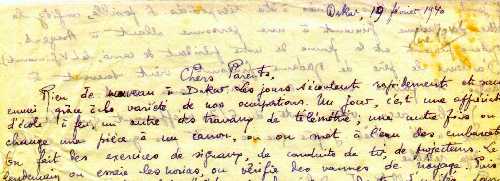 Dakar, 19 février 1940
Chers Parents.
Rien de nouveau à Dakar. Les jours s'écoulent rapidement et sans
ennui grâce à la variété de nos occupations. Un jour, c'est une
d'école à feu, un autre des travaux de télémétrie; une autre fois on
change une pièce à un canon, ou on met à l'eau des embarcations
on fait des exercices de signaux, de conduite de tir, de projecteurs. Le
lendemain on essaie les norias, on vérifie des vannes de noyage. Puis